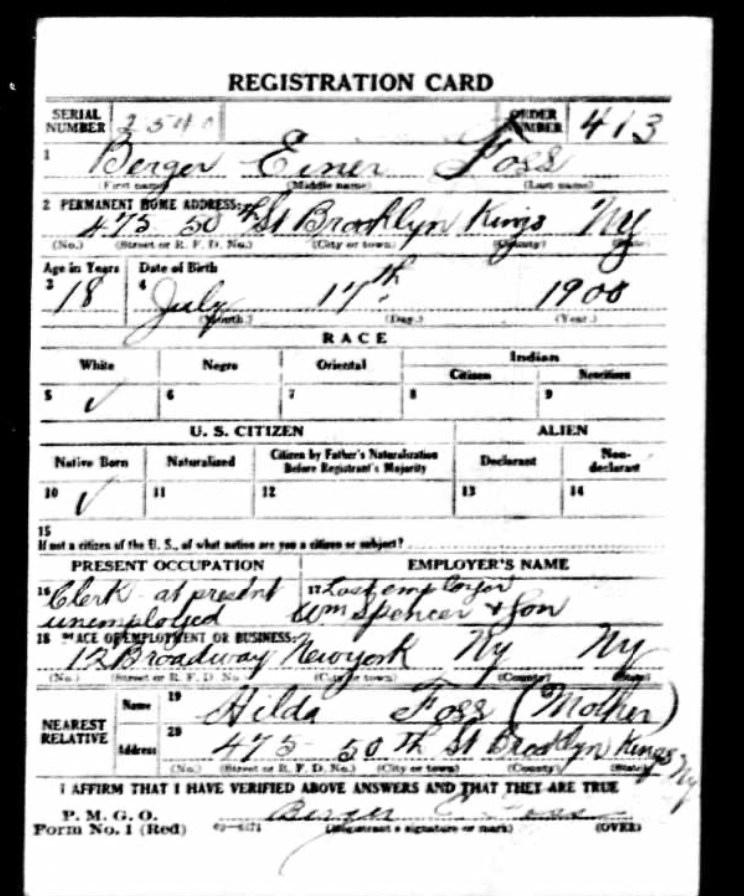 REGISTRATION CARD
SERIAL NUMBER 2540 ORDER NUMBER 413
1 Berger Einer Foss
(First name) (Middle name) (Last name)
2 PERMANENT HOME ADDRESS:
475 50th St Brooklyn Kings Ny
(No.) (Street or R. F. D. No.) (City or town) (County) (State)
Age in Years Date of Birth
3 18 4 July 17th 1900
(Month.) (Day.) (Year.)
RACE
White Negro Oriental Indian
Citizen Noncitizen
5 ✓ 6 7 8 9
U. S. CITIZEN ALIEN
Native Born Naturalized Citizen by Father's Naturalization Before Registrant's Majority Declarant Non-declarant
10 ✓ 11 12 13 14
15
If not a citizen of the U. S., of what nation are you a citizen or subject?
PRESENT OCCUPATION EMPLOYER'S NAME
16 Clerk at present 17 Last employer
unemployed Wm Spencer & Son
18 PLACE OF EMPLOYMENT OR BUSINESS:
12 Broadway Newyork Ny Ny
(No.) (Street or R. F. D. No.) (City or town) (County) (State)
NEAREST RELATIVE Name 19 Hilda Foss (Mother)
Address 20 475 - 50th St Brooklyn Kings Ny
(No.) (Street or R. F. D. No.) (City or town) (County) (State)
I AFFIRM THAT I HAVE VERIFIED ABOVE ANSWERS AND THAT THEY ARE TRUE
P. M. G. O.
Form No. 1 (Red) Berger E Foss
(Registrant's signature or mark) (OVER)